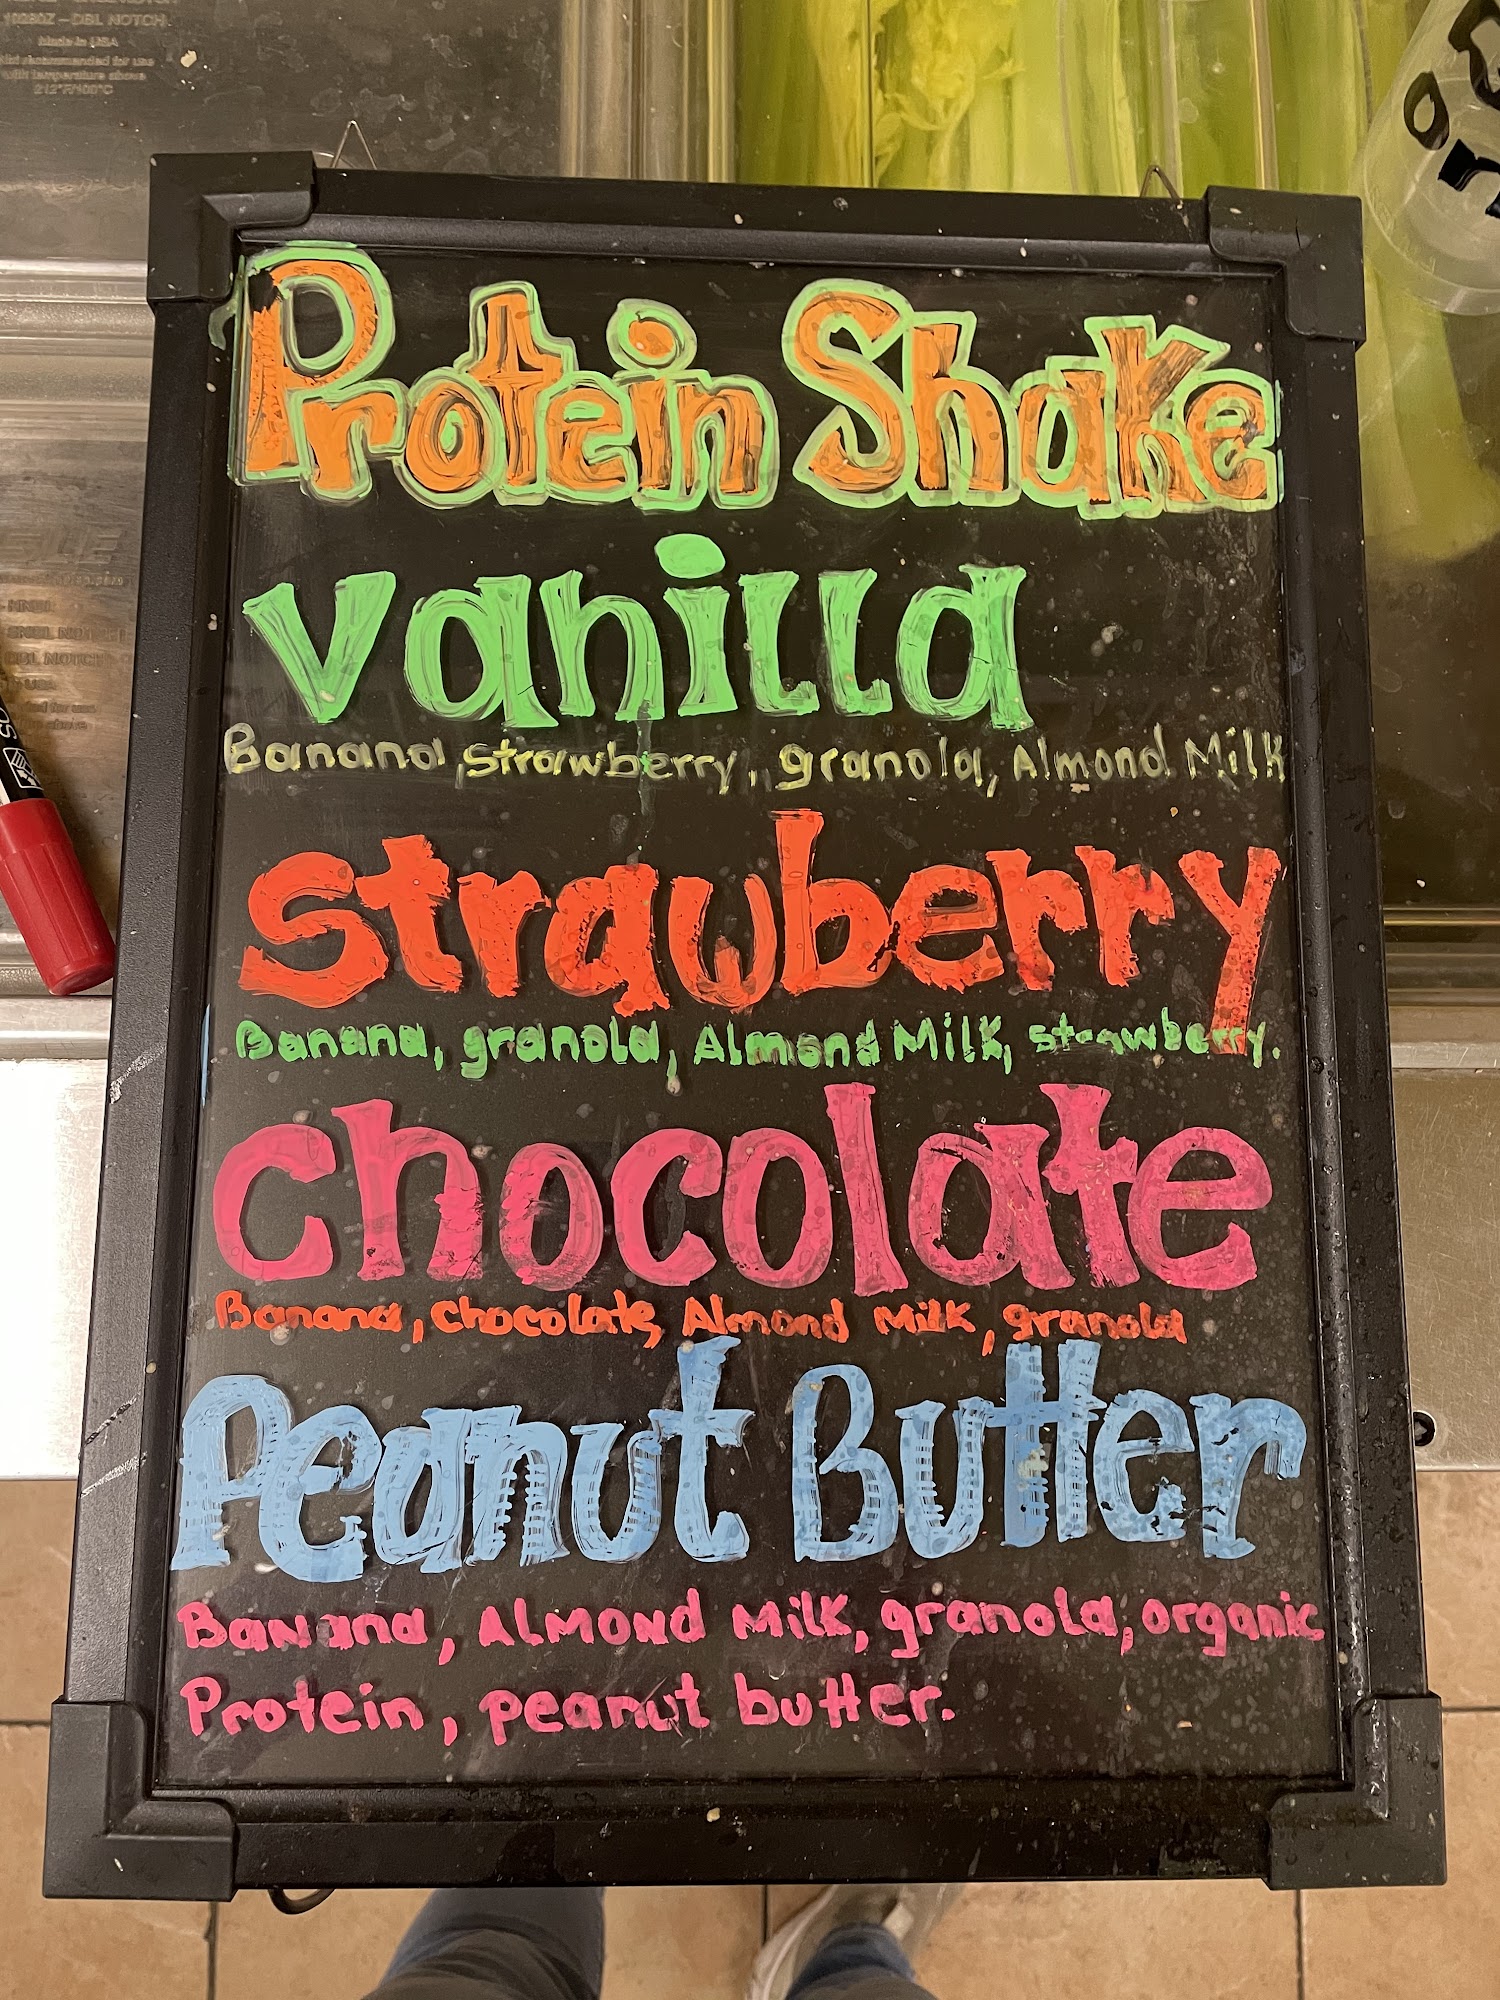 10280Z - DBL NOTCH
Made in USA
212°F/100°C
Protein Shake
vanilla
Banana, strawberry, granola, Almond Milk
strawberry
Banana, granola, Almond Milk, strawberry.
chocolate
Banana, chocolate, Almond Milk, granola
Peanut Butter
Banana, Almond Milk, granola, organic
Protein, peanut butter.